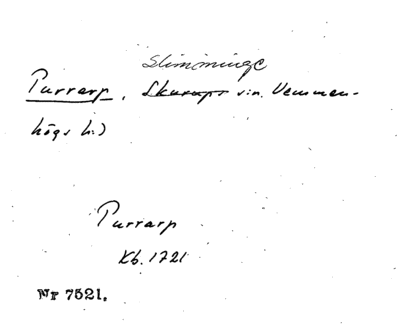 Slimminge
Purrarp, Skurups sn. Vemmen-
högs h.)
Purrarp
Kb. 1721
Nr 7521.